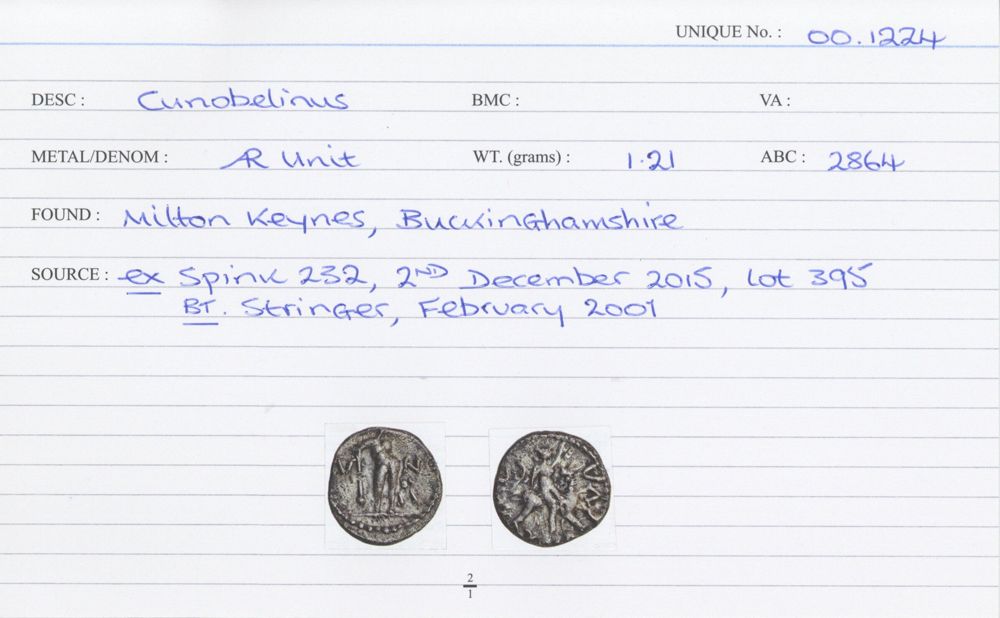 UNIQUE No. : 00.1224
DESC : Cunobelinus BMC : VA :
METAL/DENOM : AR Unit WT. (grams) : 1.21 ABC : 2864
FOUND : Milton Keynes, Buckinghamshire
SOURCE : ex Spink 232, 2ND December 2015, Lot 395
BT. Stringer, February 2001
2
1